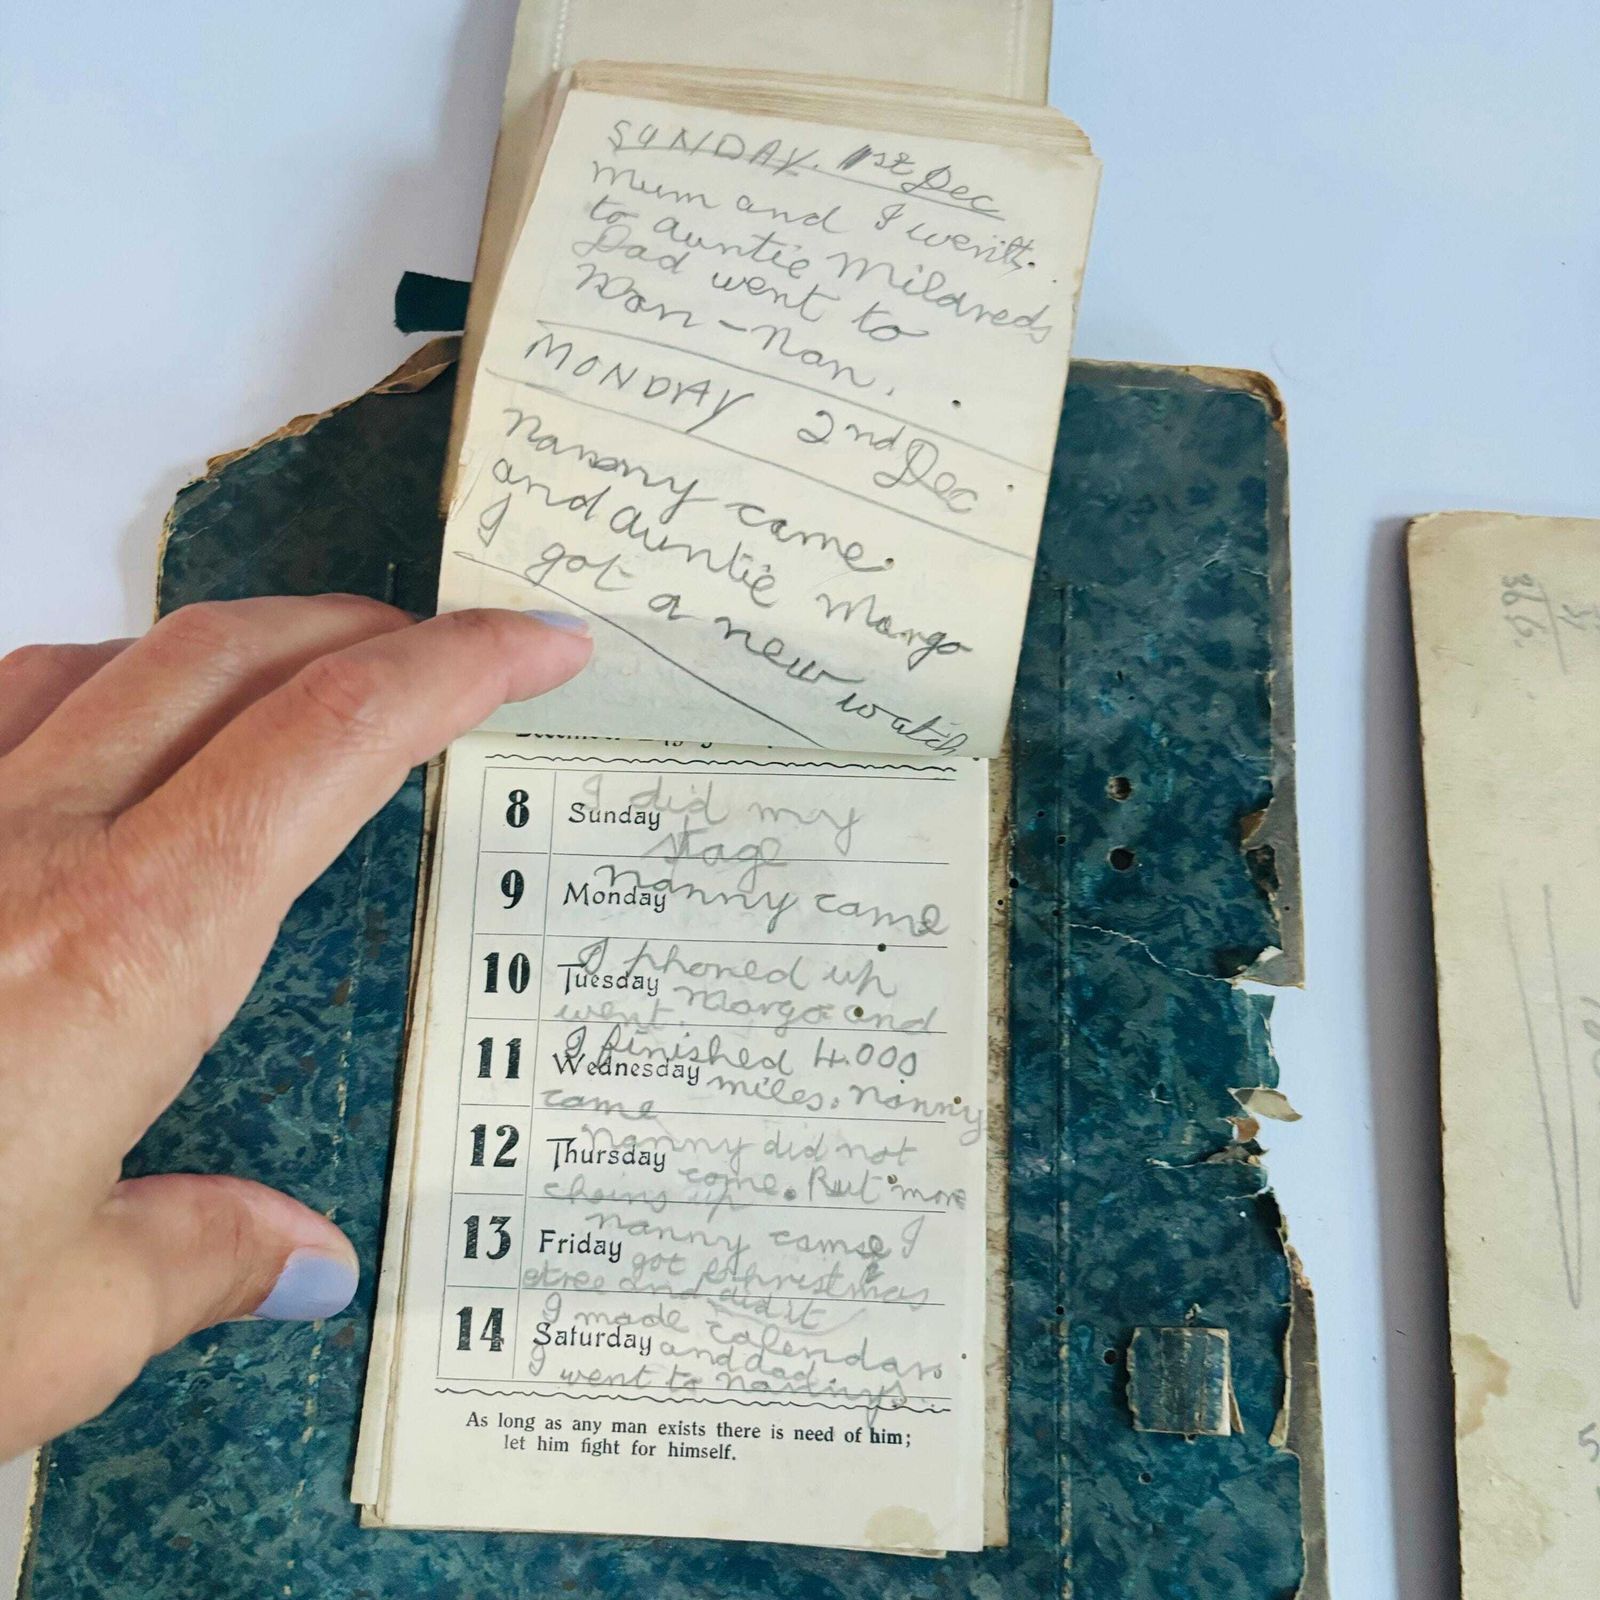 SUNDAY. 1st Dec
Mum and I went.
to auntie Mildreds
Dad went to
Nan-nan.
MONDAY 2nd Dec
Nanny came.
and auntie Margo
I got a new watch
8 Sunday I did my
stage
9 Monday Nanny came
10 Tuesday I phoned up
Margo and
went.
11 Wednesday I finished 4.000
miles. Nanny
came
12 Thursday Nanny did not
come. But more
chains up
13 Friday Nanny came I
got Christmas
tree and did it
14 Saturday I made calendars
and dad
I went to Nannys.
As long as any man exists there is need of him;
let him fight for himself.